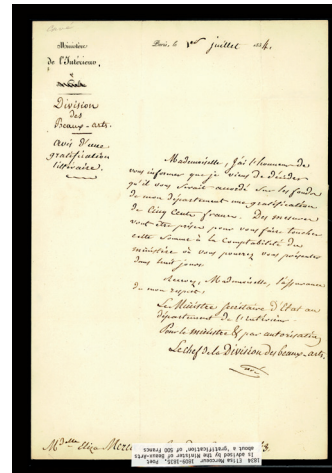 Ministère
de l'Intérieur.
Division
des
Beaux-arts.
Avis d'une
gratification
littéraire.
Paris, le 1er juillet 1834.
Mademoiselle, j'ai l'honneur de
vous informer que je viens de décider
qu'il vous serait accordé sur les fonds
de mon département une gratification
de Cinq Cents francs. Des mesures
vont être prises pour vous faire toucher
cette somme à la Comptabilité du
ministère où vous pouvez vous présenter
dans huit jours.
Recevez, Mademoiselle, l'assurance
de mon respect.
Le Ministre secrétaire d'Etat au
département de l'intérieur
Pour le ministre & par autorisation
Le chef de la division des beaux-arts.
Mdelle Eliza Mercoeur
1834 Elisa Mercoeur 1809-1835, Poet
is advised by the Minister of Beaux-Arts
about a "gratification" of 500 francs